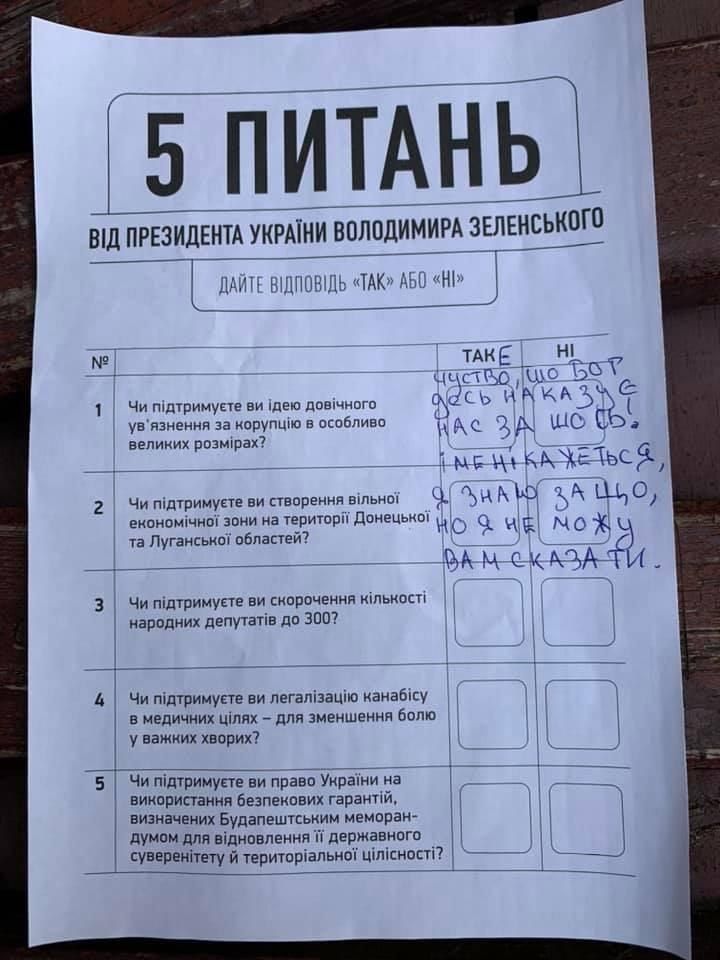 5 ПИТАНЬ
ВІД ПРЕЗИДЕНТА УКРАЇНИ ВОЛОДИМИРА ЗЕЛЕНСЬКОГО
ДАЙТЕ ВІДПОВІДЬ «ТАК» АБО «НІ»
№ ТАКЕ НІ
1 Чи підтримуєте ви ідею довічного
ув'язнення за корупцію в особливо
великих розмірах?
чуство, шо Бог
десь наказує
нас за шось!
і мені кажеться,
2 Чи підтримуєте ви створення вільної
економічної зони на території Донецької
та Луганської областей?
я знаю за що,
но я не можу
вам сказати.
3 Чи підтримуєте ви скорочення кількості
народних депутатів до 300?
4 Чи підтримуєте ви легалізацію канабісу
в медичних цілях – для зменшення болю
у важких хворих?
5 Чи підтримуєте ви право України на
використання безпекових гарантій,
визначених Будапештським меморан-
думом для відновлення її державного
суверенітету й територіальної цілісності?